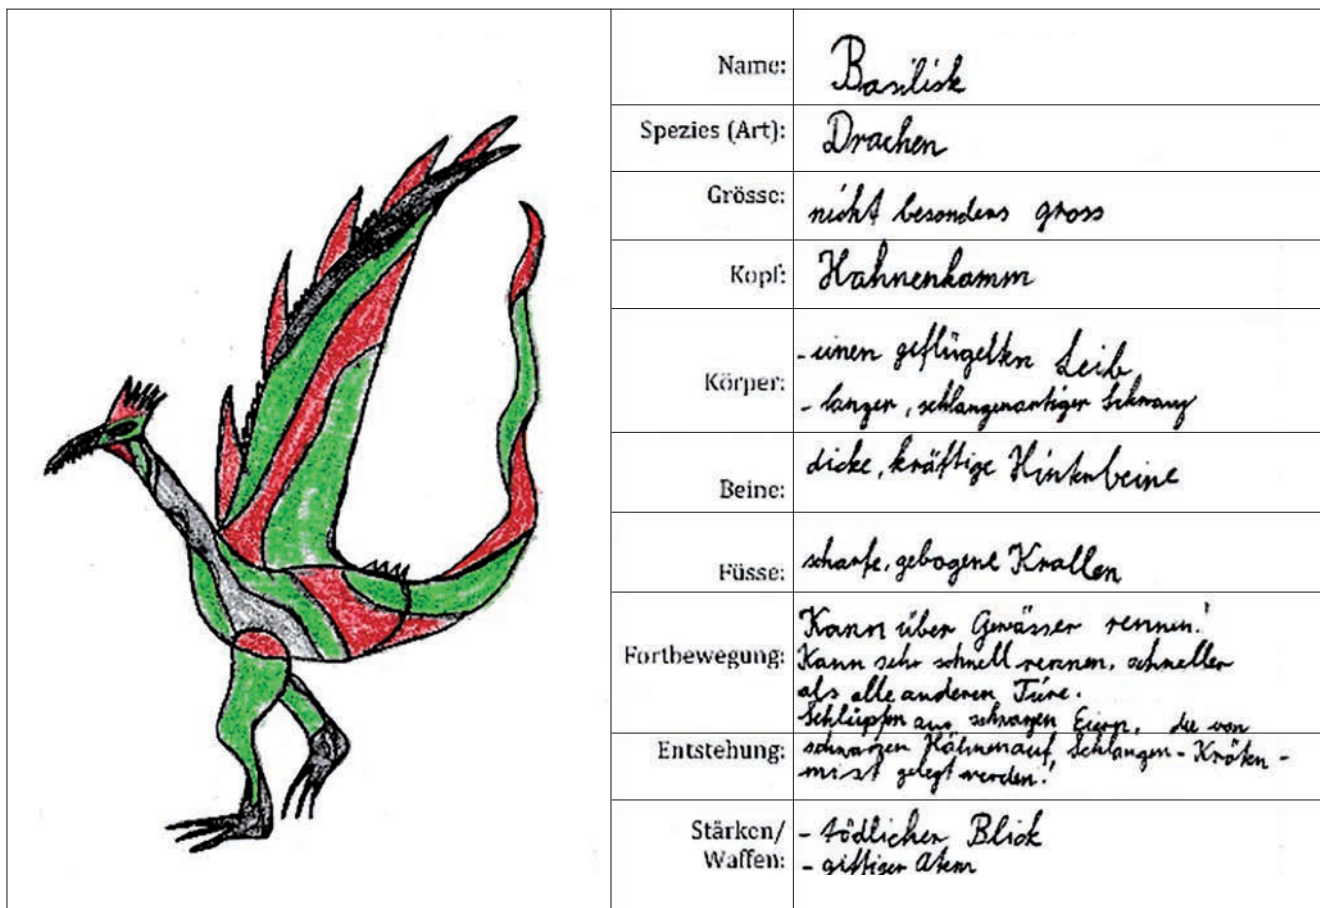 Name: Basilisk
Spezies (Art): Drachen
Grösse: nicht besonders gross
Kopf: Hahnenkamm
Körper: - einen geflügelten Leib,
- langer, schlangenartiger Schwanz
Beine: dicke, kräftige Hinterbeine
Füsse: scharfe, gebogene Krallen
Fortbewegung: Kann über Gewässer rennen!
Kann sehr schnell rennen, schneller
als alle anderen Tiere.
Entstehung: Schlüpfen aus schwarzen Eiern, die von
schwarzen Hähnen auf Schlangen-Kröten-
mist gelegt werden!
Stärken/
Waffen: - tödlicher Blick
- giftiger Atem